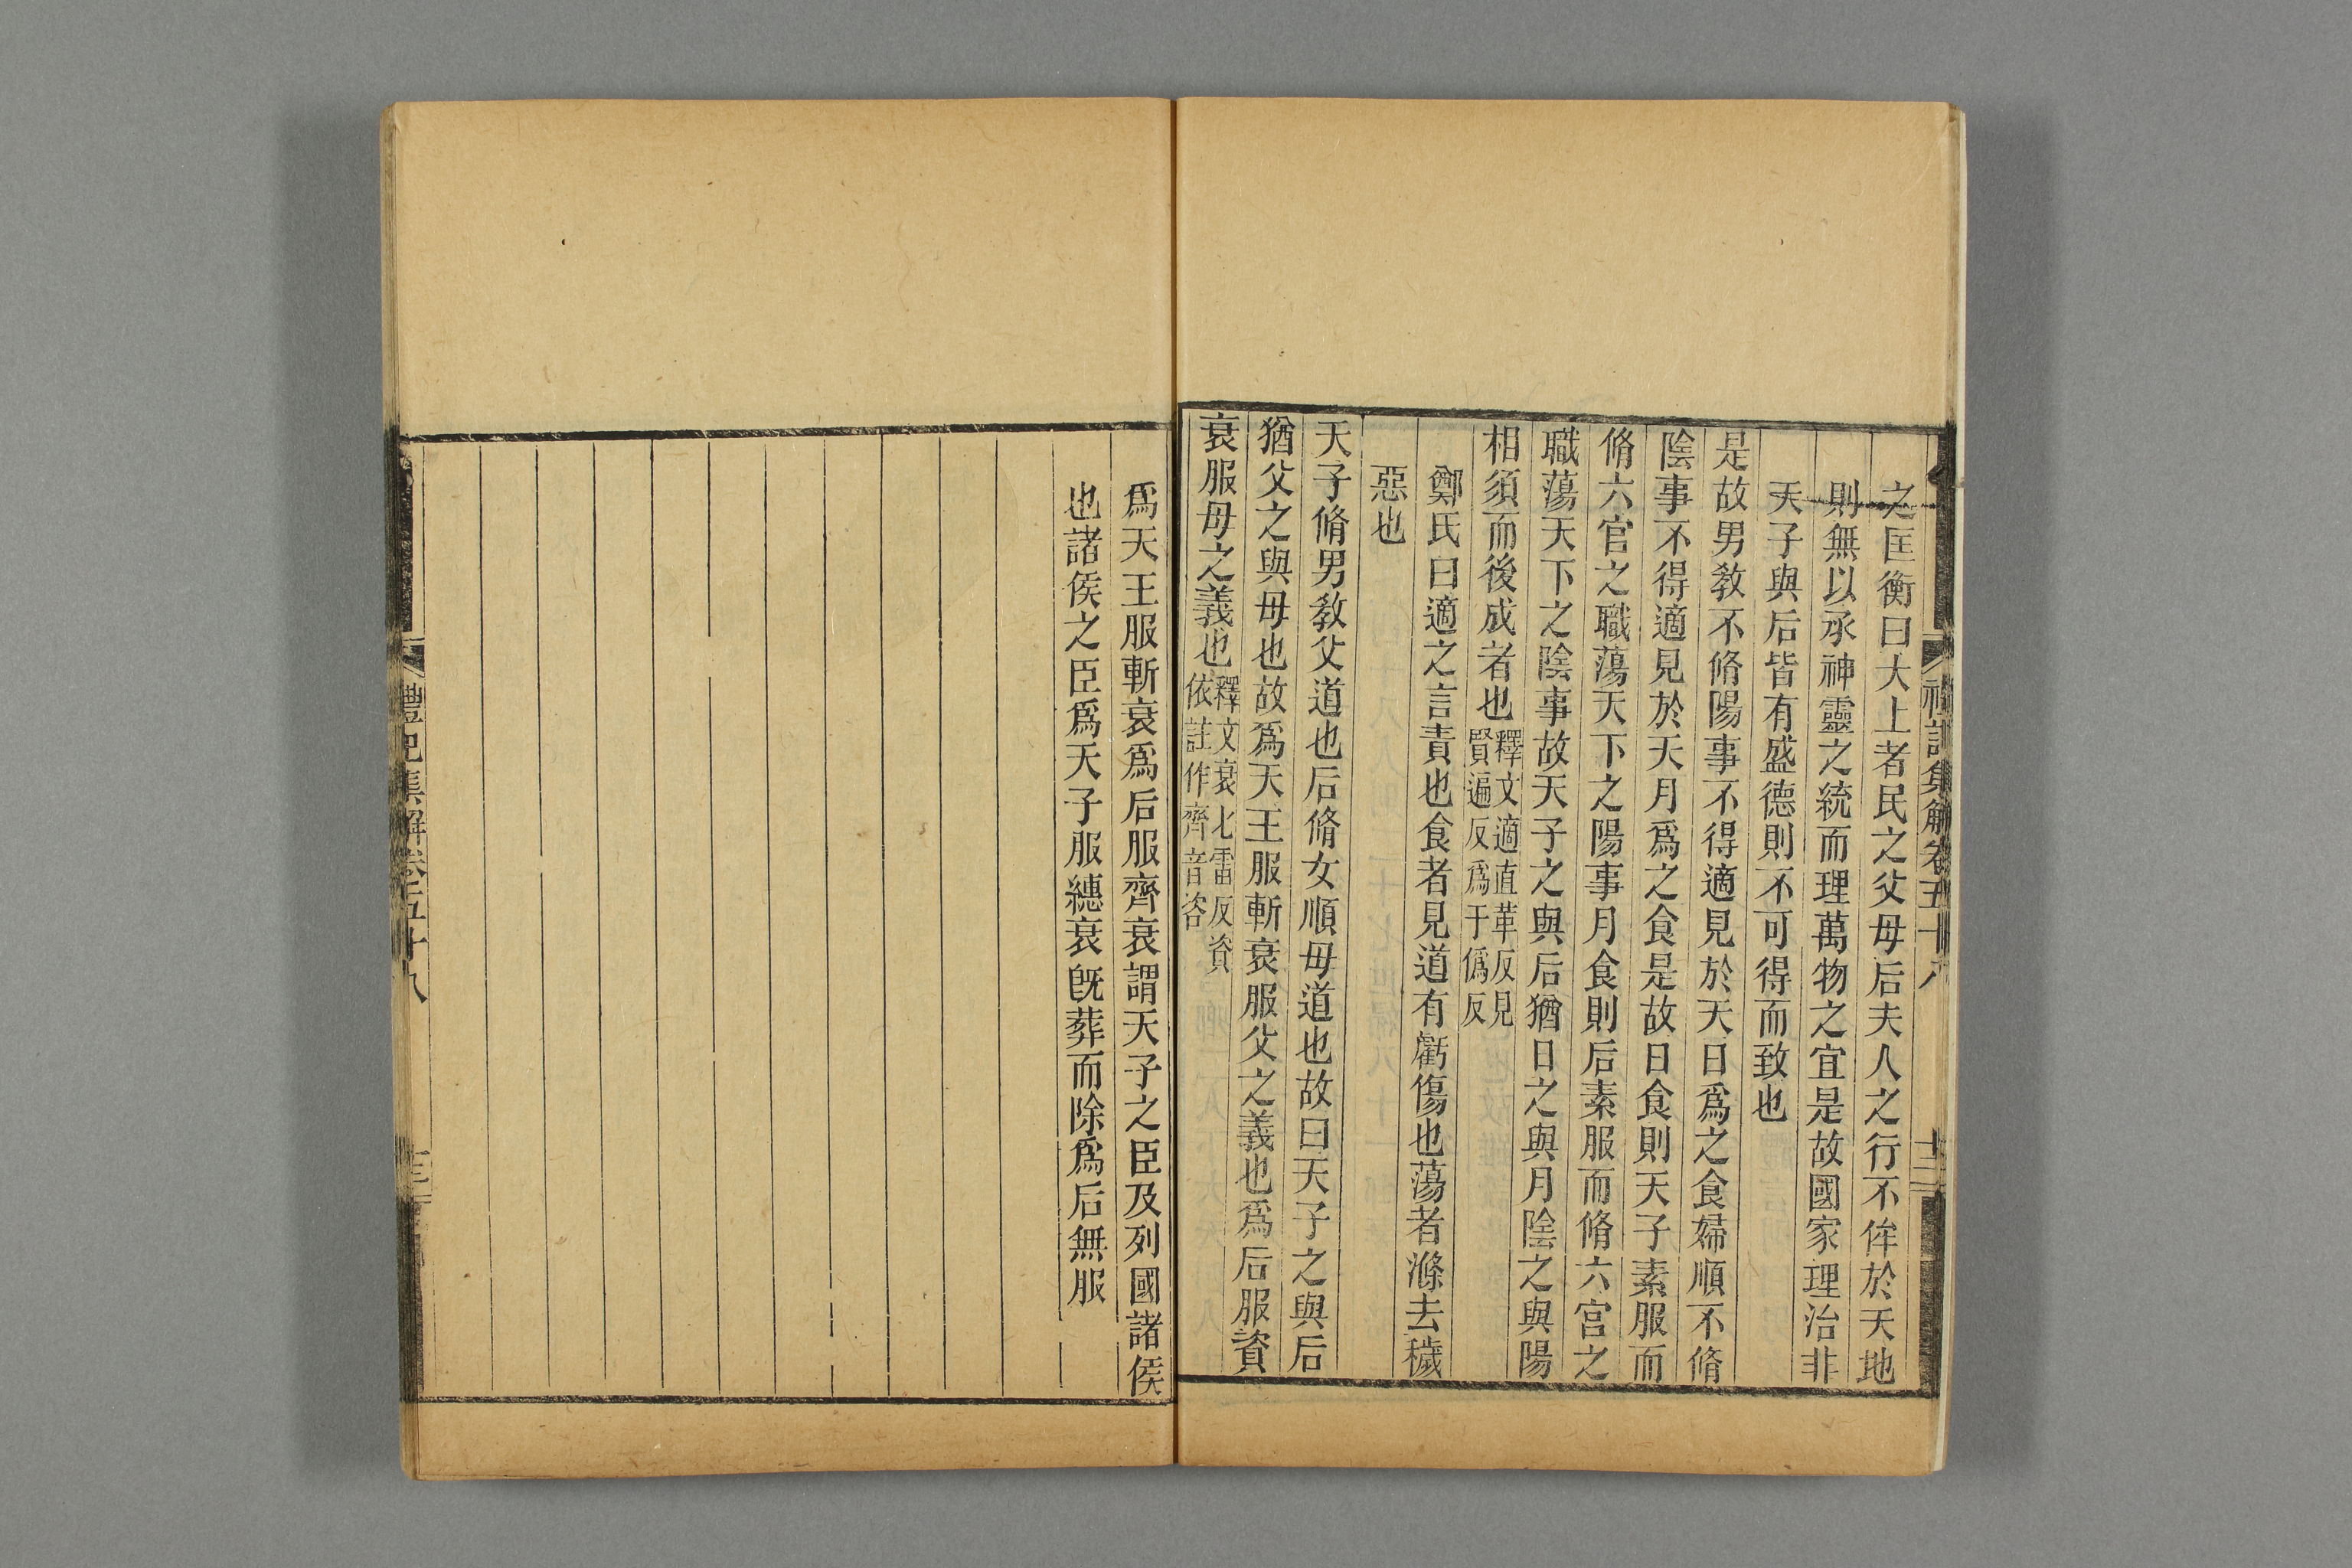 禮記集解卷五十八
十二
之匡衡曰大上者民之父母后夫人之行不侔於天地
則無以承神靈之統而理萬物之宜是故國家理治非
天子與后皆有盛德則不可得而致也
是故男教不脩陽事不得適見於天日爲之食婦順不脩
陰事不得適見於天月爲之食是故日食則天子素服而
脩六官之職蕩天下之陽事月食則后素服而脩六宮之
職蕩天下之陰事故天子之與后猶日之與月陰之與陽
相須而後成者也釋文適直革反見
賢遍反爲于僞反
鄭氏曰適之言責也食者見道有虧傷也蕩者滌去穢
惡也
天子脩男教父道也后脩女順母道也故曰天子之與后
猶父之與母也故爲天王服斬衰服父之義也爲后服資
衰服母之義也釋文衰七雷反資
依註作齊音咨
爲天王服斬衰爲后服齊衰謂天子之臣及列國諸侯
也諸侯之臣爲天子服繐衰旣葬而除爲后無服
禮記集解卷五十八